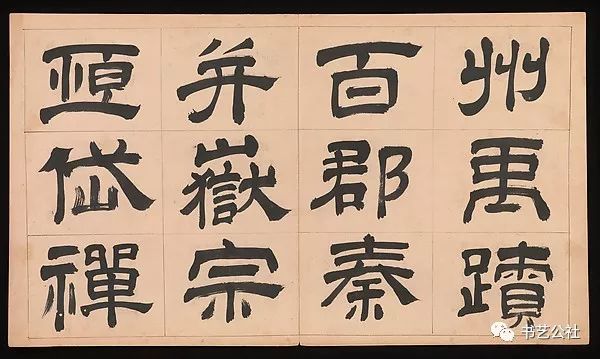 州禹蹟
百郡秦
并嶽宗
恆岱禪
书艺公社